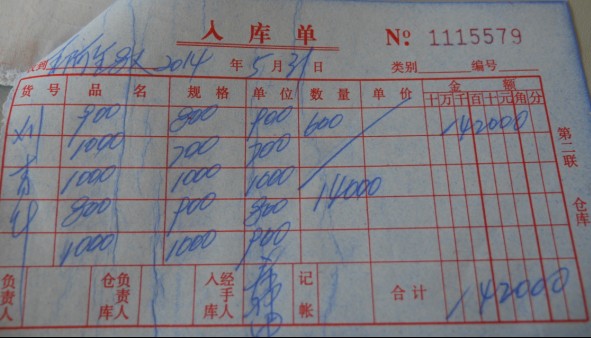 入库单 № 1115579
2014 年 5 月 31 日 类别 编号
货号 品名 规格 单位 数量 单价 金额
十万千百十元角分
900 800 900 600 142000
1000 700 700
1000 1000 1000 14000
800 900 800
1000 1000 900
负责人 仓库负责人 入库经手人 记帐 合计 142000
第二联 仓库